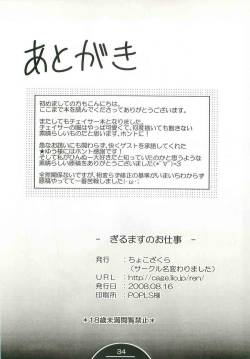 あとがき
初めましての方もこんにちは。
ここまで本を読んでくださってありがとうございます。
またしてもチェイサー本となりました。
チェイサーの闇はやっぱ可愛くて、何度描いても飽きない
素晴らしいものだと思います、ホントに!
急なお誘いにも関わらず、快くゲスト を承諾してくれた
★ゆう様にはホント感謝です!
そして私がひんぬー大好きだと知っていたのかと思うような
素晴らしい原稿をありがとうございました(*´∀`)=3
全然関係ないですが、相変らず修正の基準がいまいちわからず
原稿やってて一番苦戦しました!・ω・;
- ぎるますのお仕事 -
発行 : ちょこざくら
(サークル名変わりました)
URL : http://cage.lio.jp/ren/
発行日 : 2008.08.16
印刷所 : POPLS様
*18歳未満閲覧禁止*
34